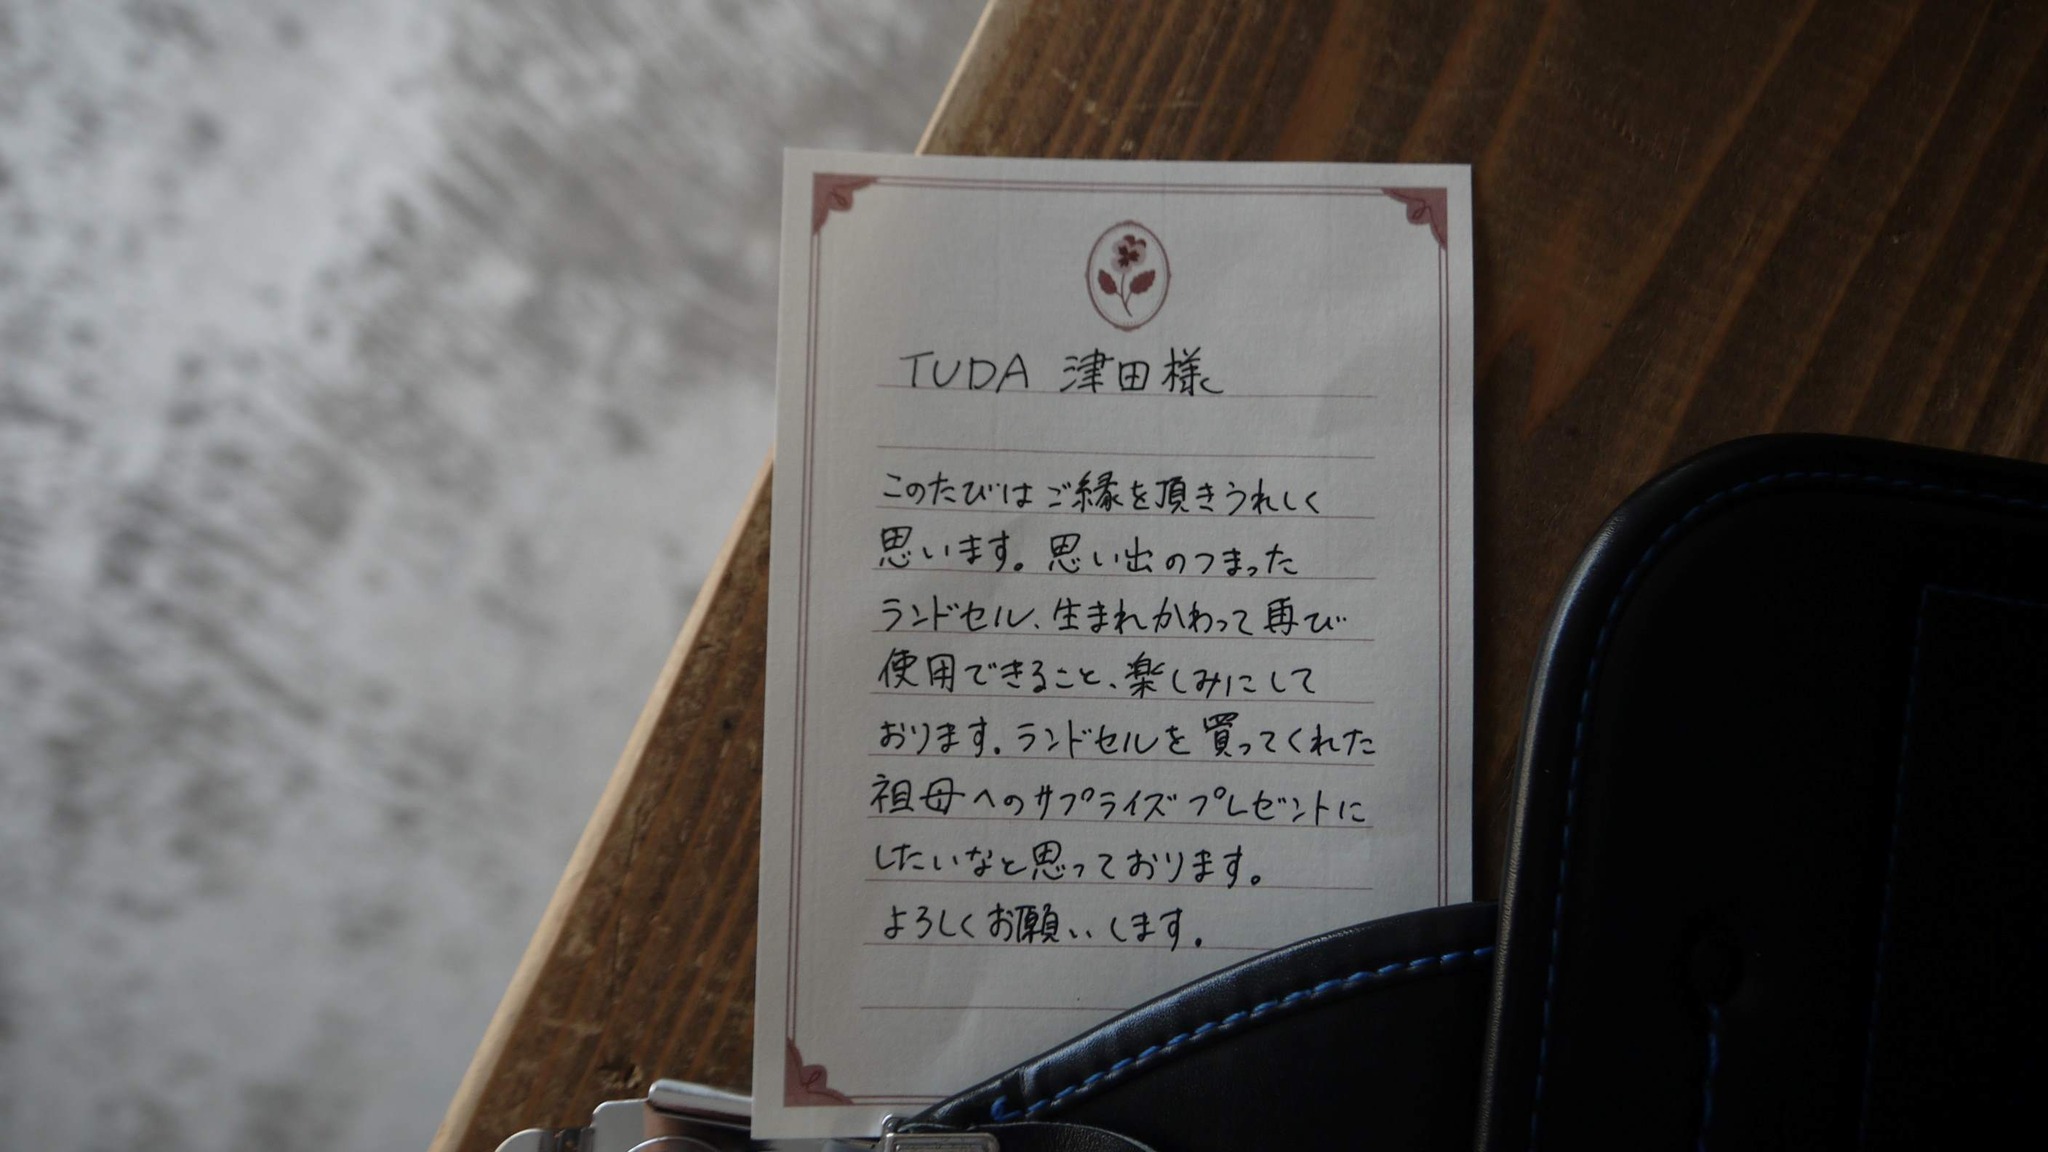 TUDA 津田様
このたびはご縁を頂きうれしく
思います。思い出のつまった
ランドセル、生まれかわって再び
使用できること、楽しみにして
おります。ランドセルを買ってくれた
祖母へのサプライズプレゼントに
したいなと思っております。
よろしくお願いします。